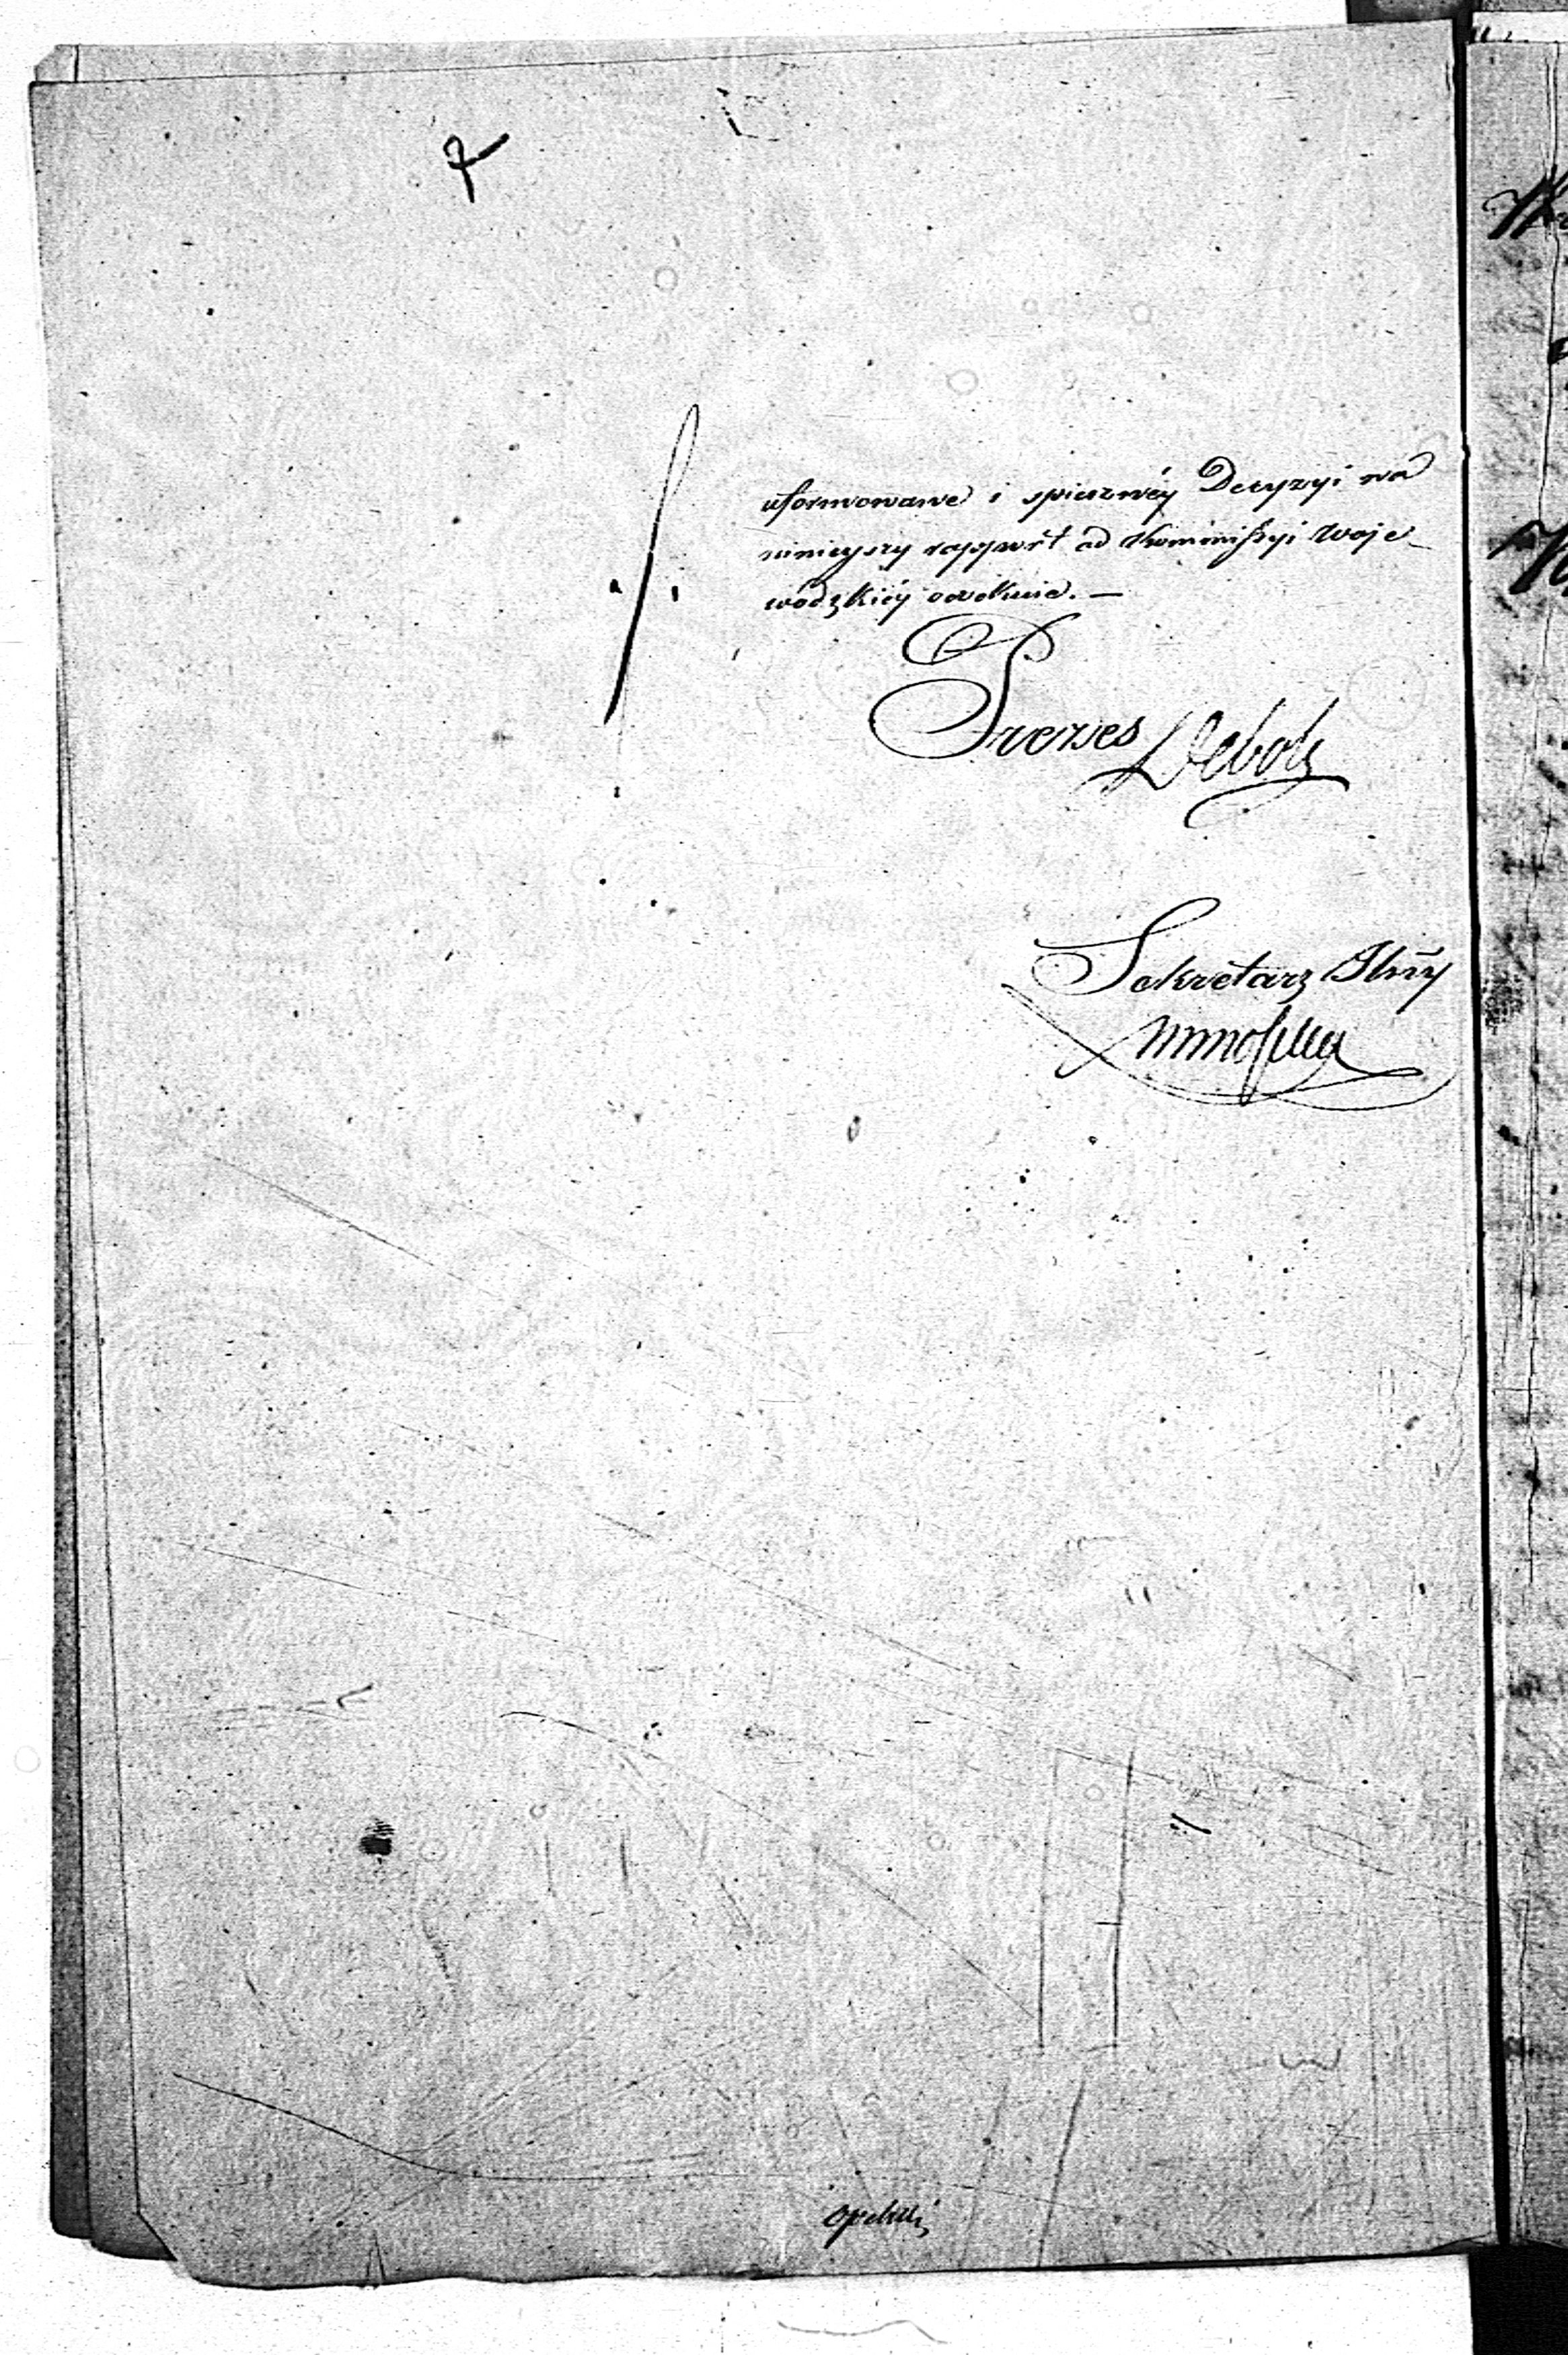 uformowane i spieszney Decyzyi na
ninieyszy rapport od Kommissyi Woje-
wodzkiey oczekuie. —
Prezes Deboli
Sekretarz Jlny